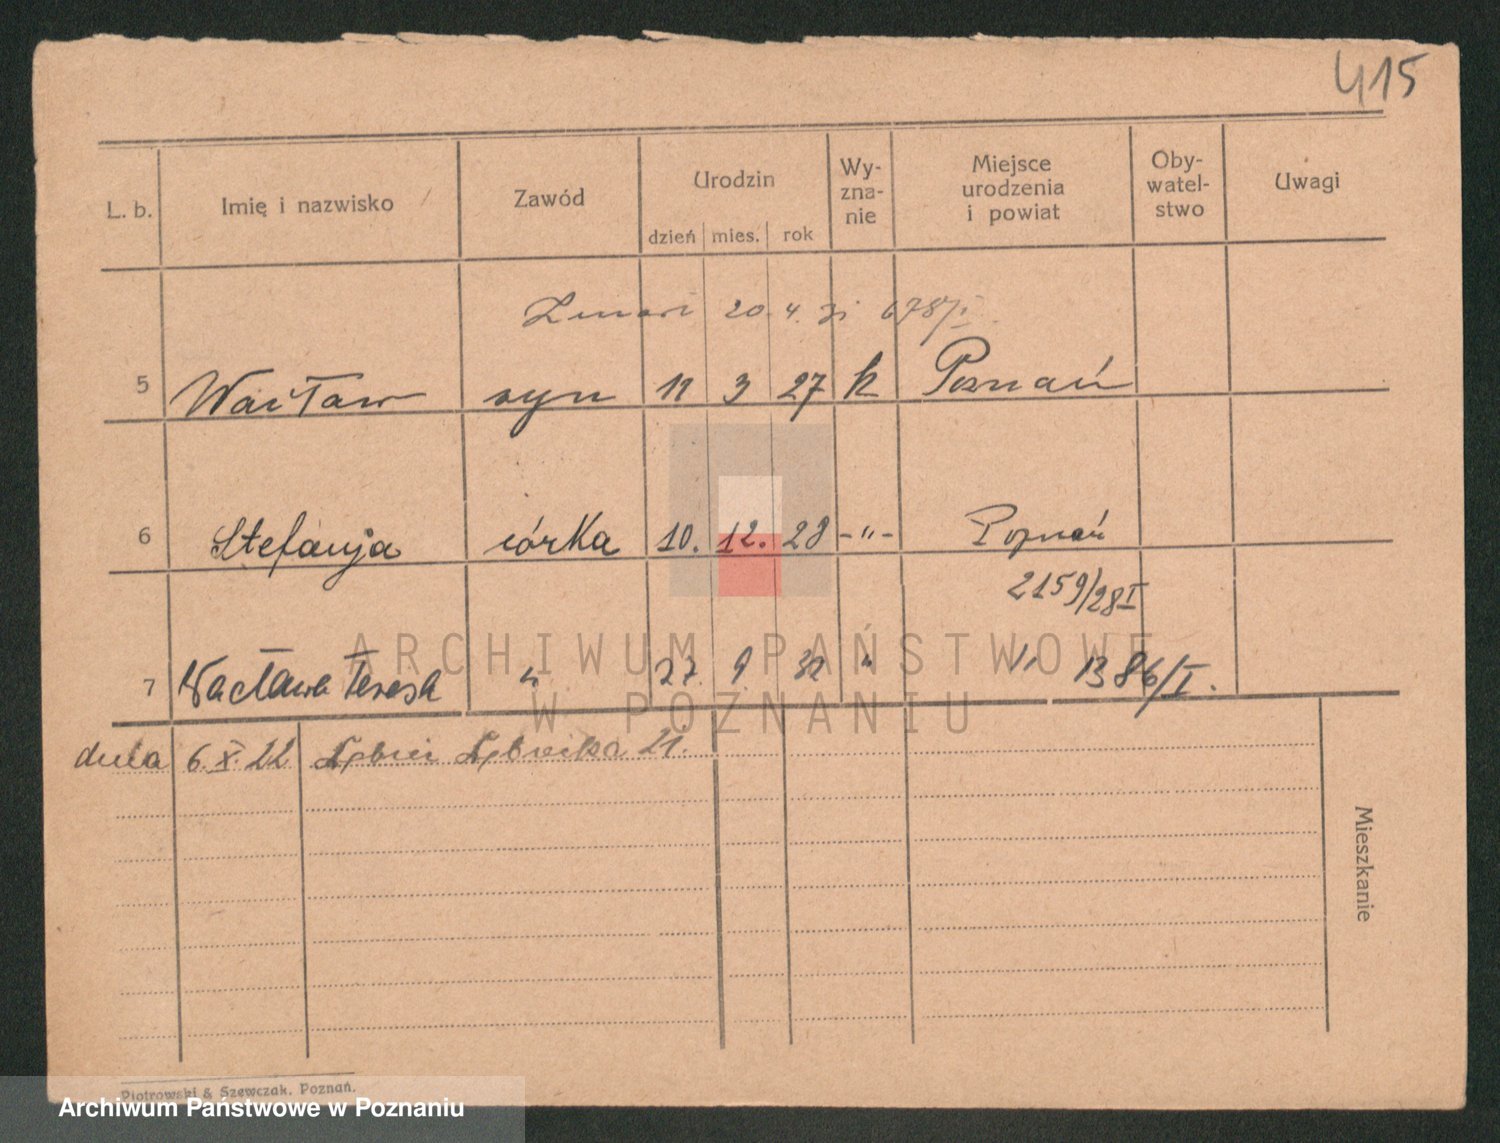 415
L. b. Imię i nazwisko Zawód Urodzin dzień mies. rok Wy-zna-nie Miejsce urodzenia i powiat Oby-watel-stwo Uwagi
20. 4. 31 678/I
5 Wacław syn 11 3 27 k Poznań
6 Stefanja córka 10. 12. 28 -"- Poznań
2159/28 I
7 Wacława Teresa " 27. 9. 32 " " 1386/I.
ARCHIWUM PAŃSTWOWE
W POZNANIU
dnia 6. X. 22 21.
Mieszkanie
Piotrowski & Szewczak, Poznań.
Archiwum Państwowe w Poznaniu